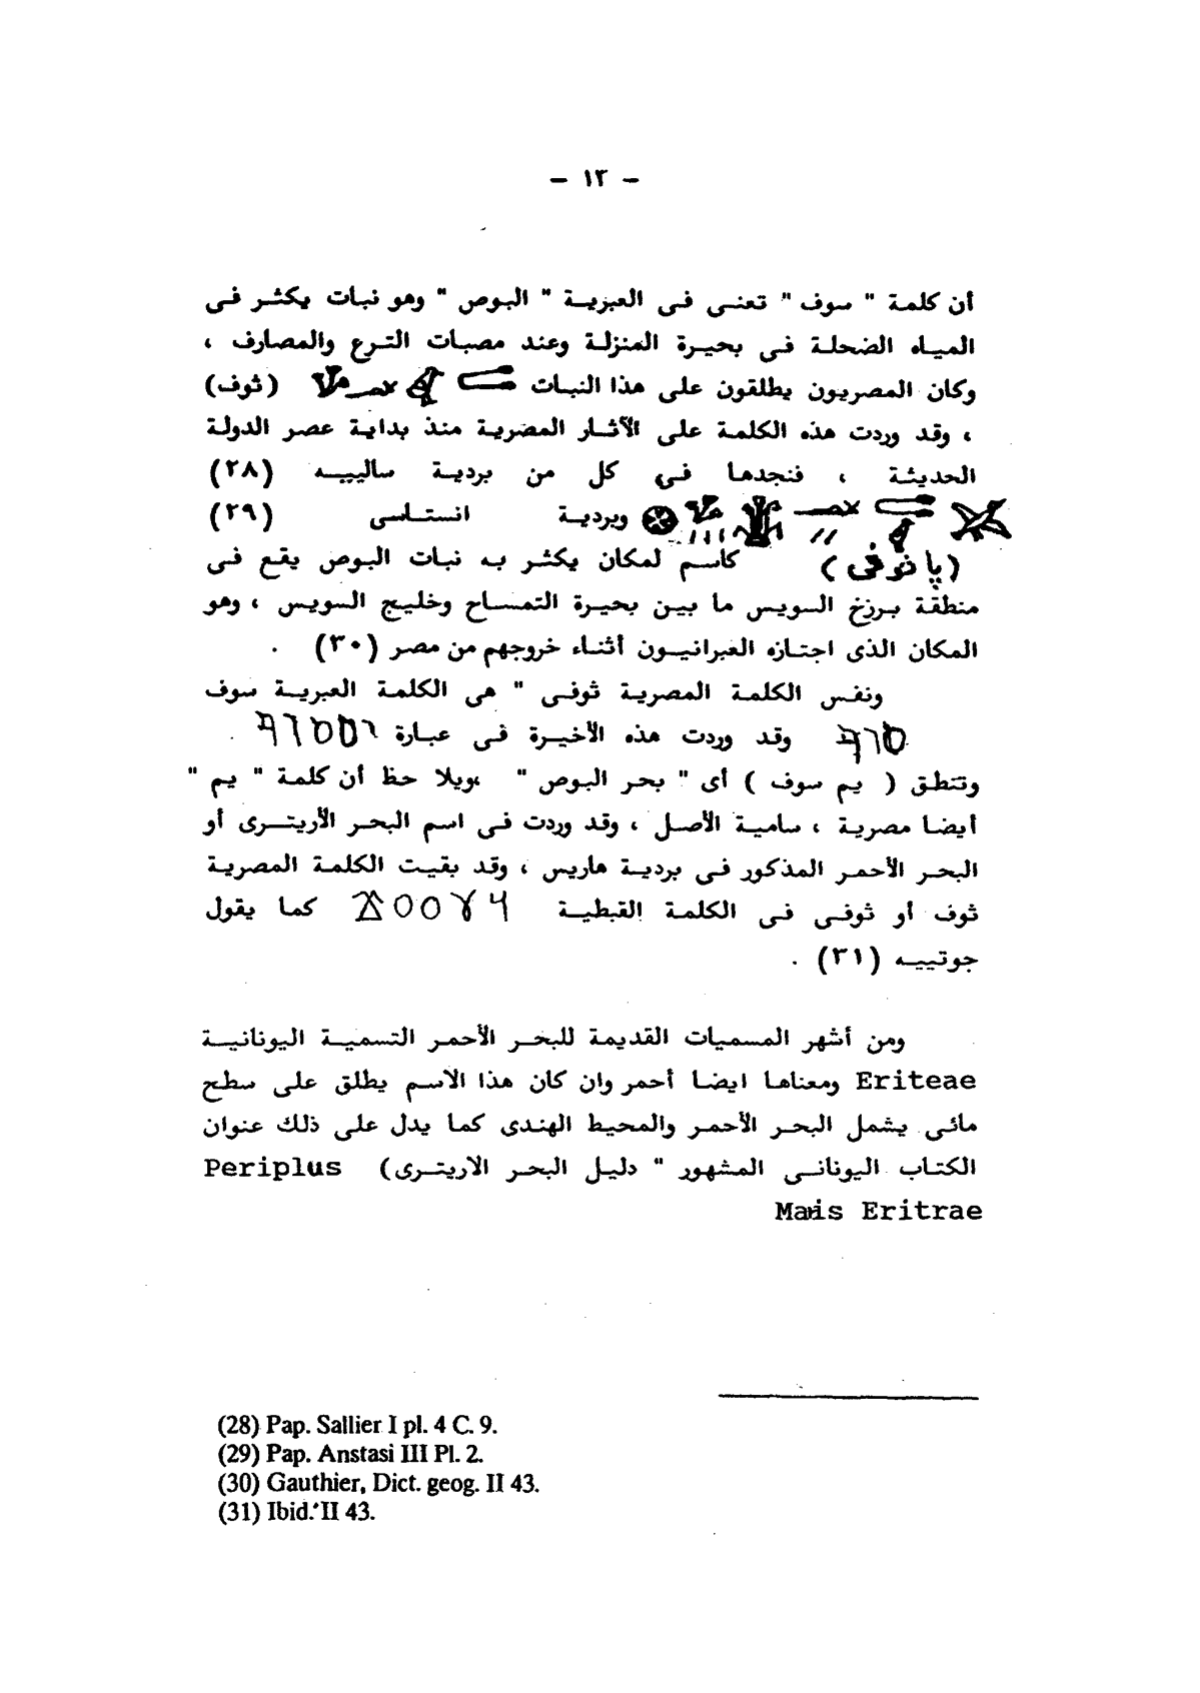 – ١٢ –
أن كلمة " سوف " تعنى فى العبرية " البوص " وهو نبات يكثر فى
المياه الضحلة فى بحيرة المنزلة وعند مصبات الترع والمصارف ،
وكان المصريون يطلقون على هذا النبات (ثوف)
، وقد وردت هذه الكلمة على الآثار المصرية منذ بداية عصر الدولة
الحديثة ، فنجدها فى كل من بردية سالييه (٢٨)
وبردية انستاسى (٢٩)
(پا ثوفى) كاسم لمكان يكثر به نبات البوص يقع فى
منطقة برزخ السويس ما بين بحيرة التمساح وخليج السويس ، وهو
المكان الذى اجتازه العبرانيون أثناء خروجهم من مصر (٣٠) .
ونفس الكلمة المصرية ثوفى " هى الكلمة العبرية سوف
وقد وردت هذه الأخيرة فى عبارة .
وتنطق ( يم سوف ) أى " بحر البوص " ويلا حظ أن كلمة " يم "
أيضا مصرية ، سامية الأصل ، وقد وردت فى اسم البحر الأريترى أو
البحر الأحمر المذكور فى بردية هاريس ، وقد بقيت الكلمة المصرية
ثوف أو ثوفى فى الكلمة القبطية كما يقول
جوتييه (٣١) .
ومن أشهر المسميات القديمة للبحر الأحمر التسمية اليونانية
Eriteae ومعناها ايضا أحمر وان كان هذا الاسم يطلق على سطح
مائى يشمل البحر الأحمر والمحيط الهندى كما يدل على ذلك عنوان
الكتاب اليونانى المشهور " دليل البحر الاريترى) Periplus
Maris Eritrae
(28) Pap. Sallier I pl. 4 C. 9.
(29) Pap. Anstasi III Pl. 2.
(30) Gauthier, Dict. geog. II 43.
(31) Ibid. II 43.